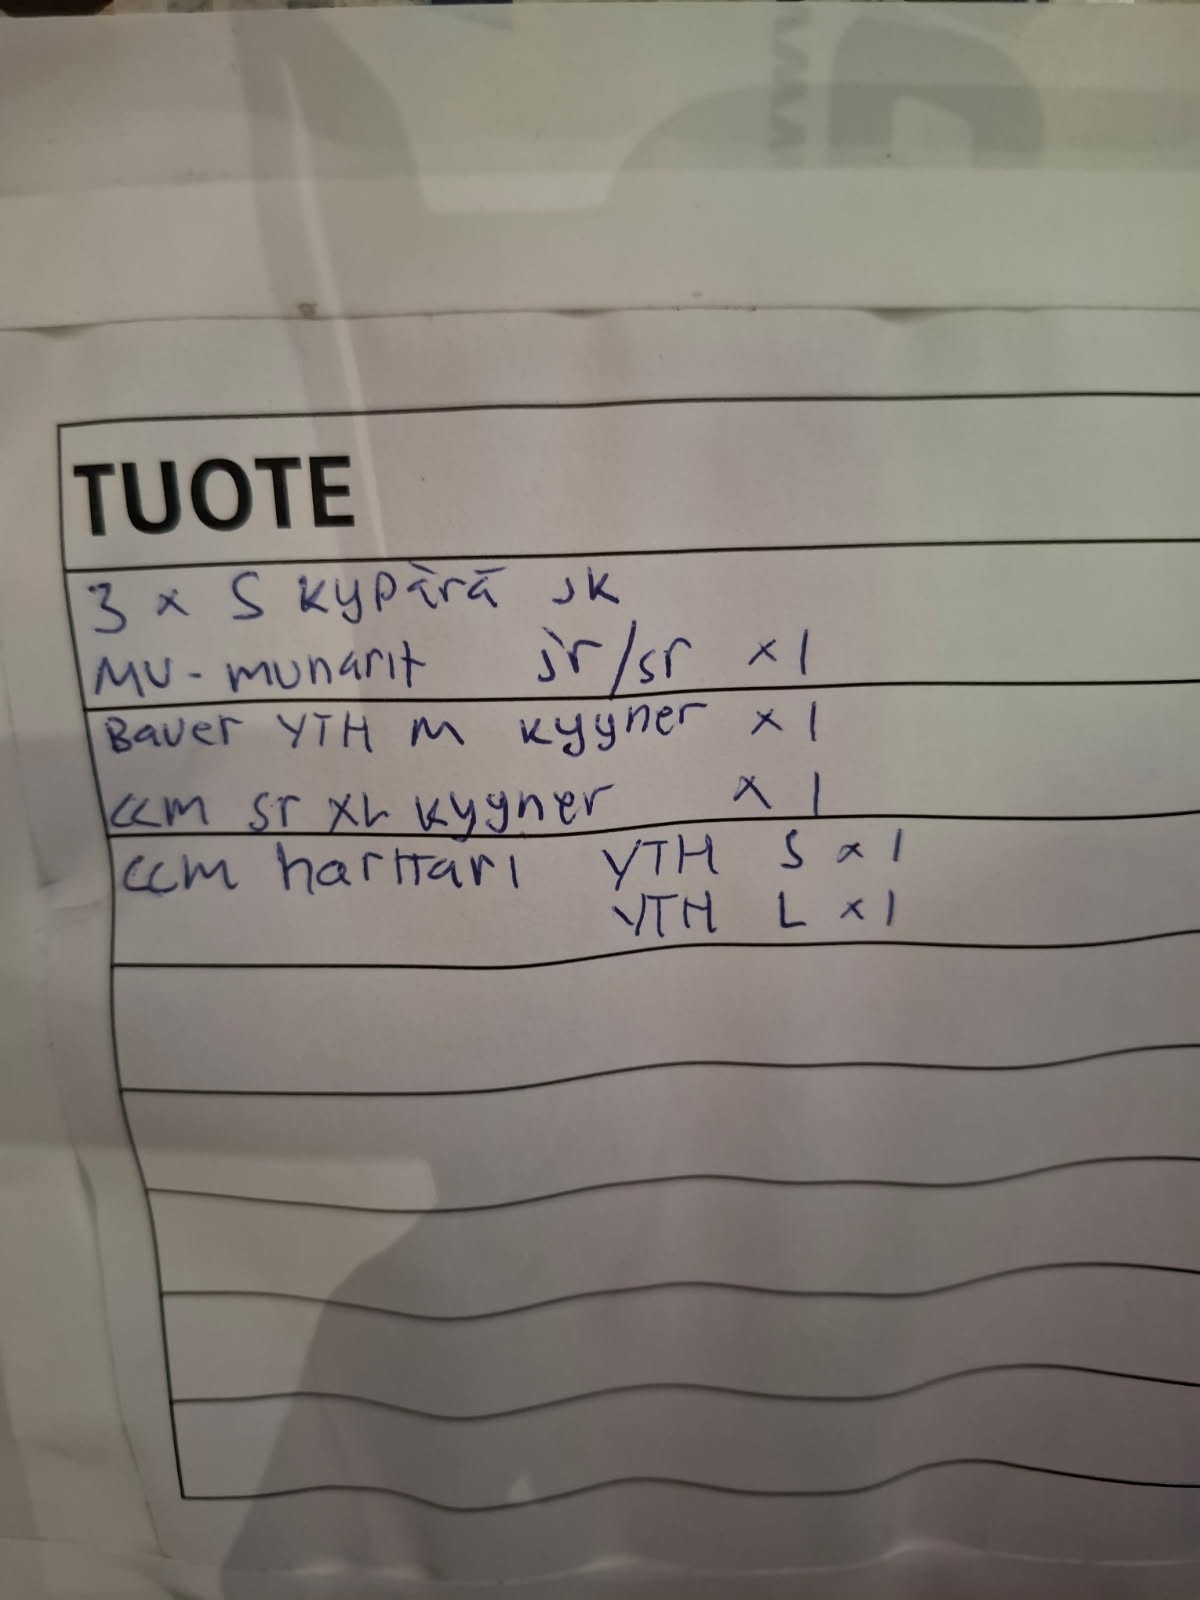 TUOTE
3 x S kypärä jk
MV-munarit jr/sr x1
Bauer YTH M kyyner x1
ccm sr XL kyyner x1
ccm harttari YTH S x1
YTH L x1